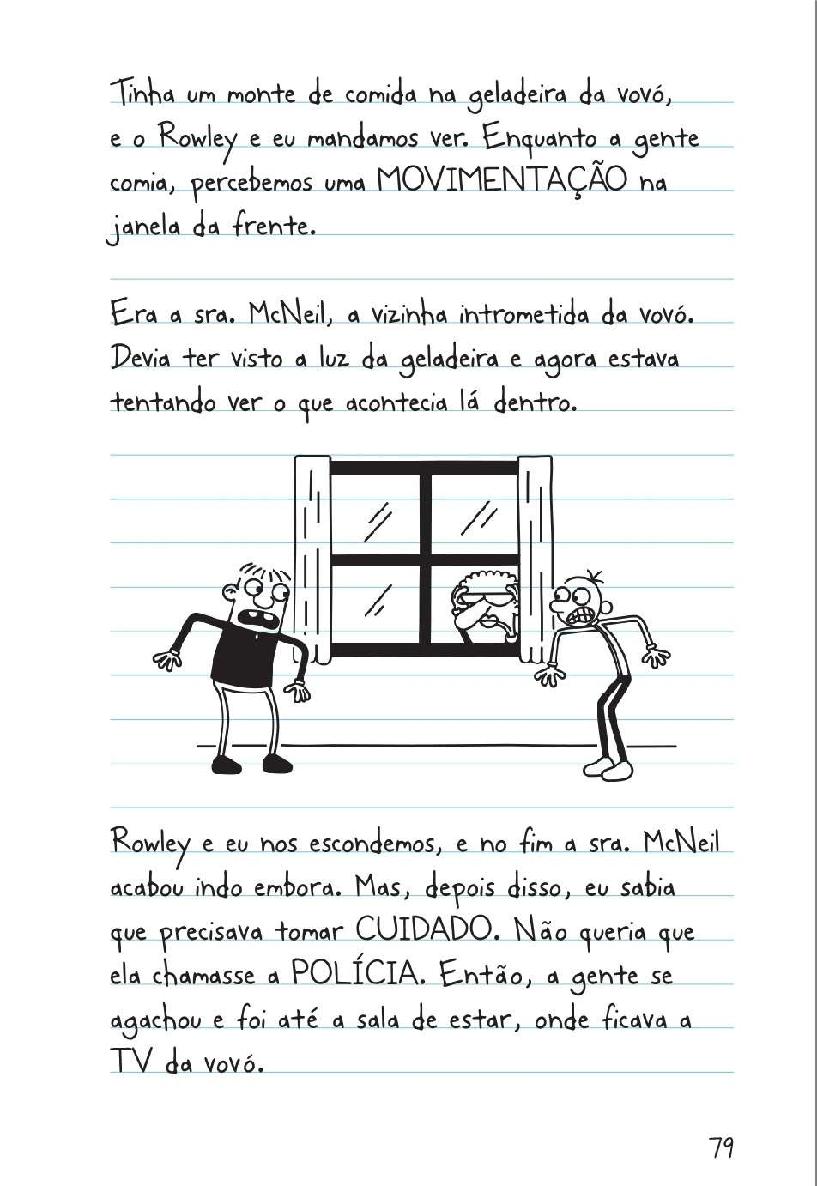 Tinha um monte de comida na geladeira da vovó,
e o Rowley e eu mandamos ver. Enquanto a gente
comia, percebemos uma MOVIMENTAÇÃO na
janela da frente.
Era a sra. McNeil, a vizinha intrometida da vovó.
Devia ter visto a luz da geladeira e agora estava
tentando ver o que acontecia lá dentro.
Rowley e eu nos escondemos, e no fim a sra. McNeil
acabou indo embora. Mas, depois disso, eu sabia
que precisava tomar CUIDADO. Não queria que
ela chamasse a POLÍCIA. Então, a gente se
agachou e foi até a sala de estar, onde ficava a
TV da vovó.
79